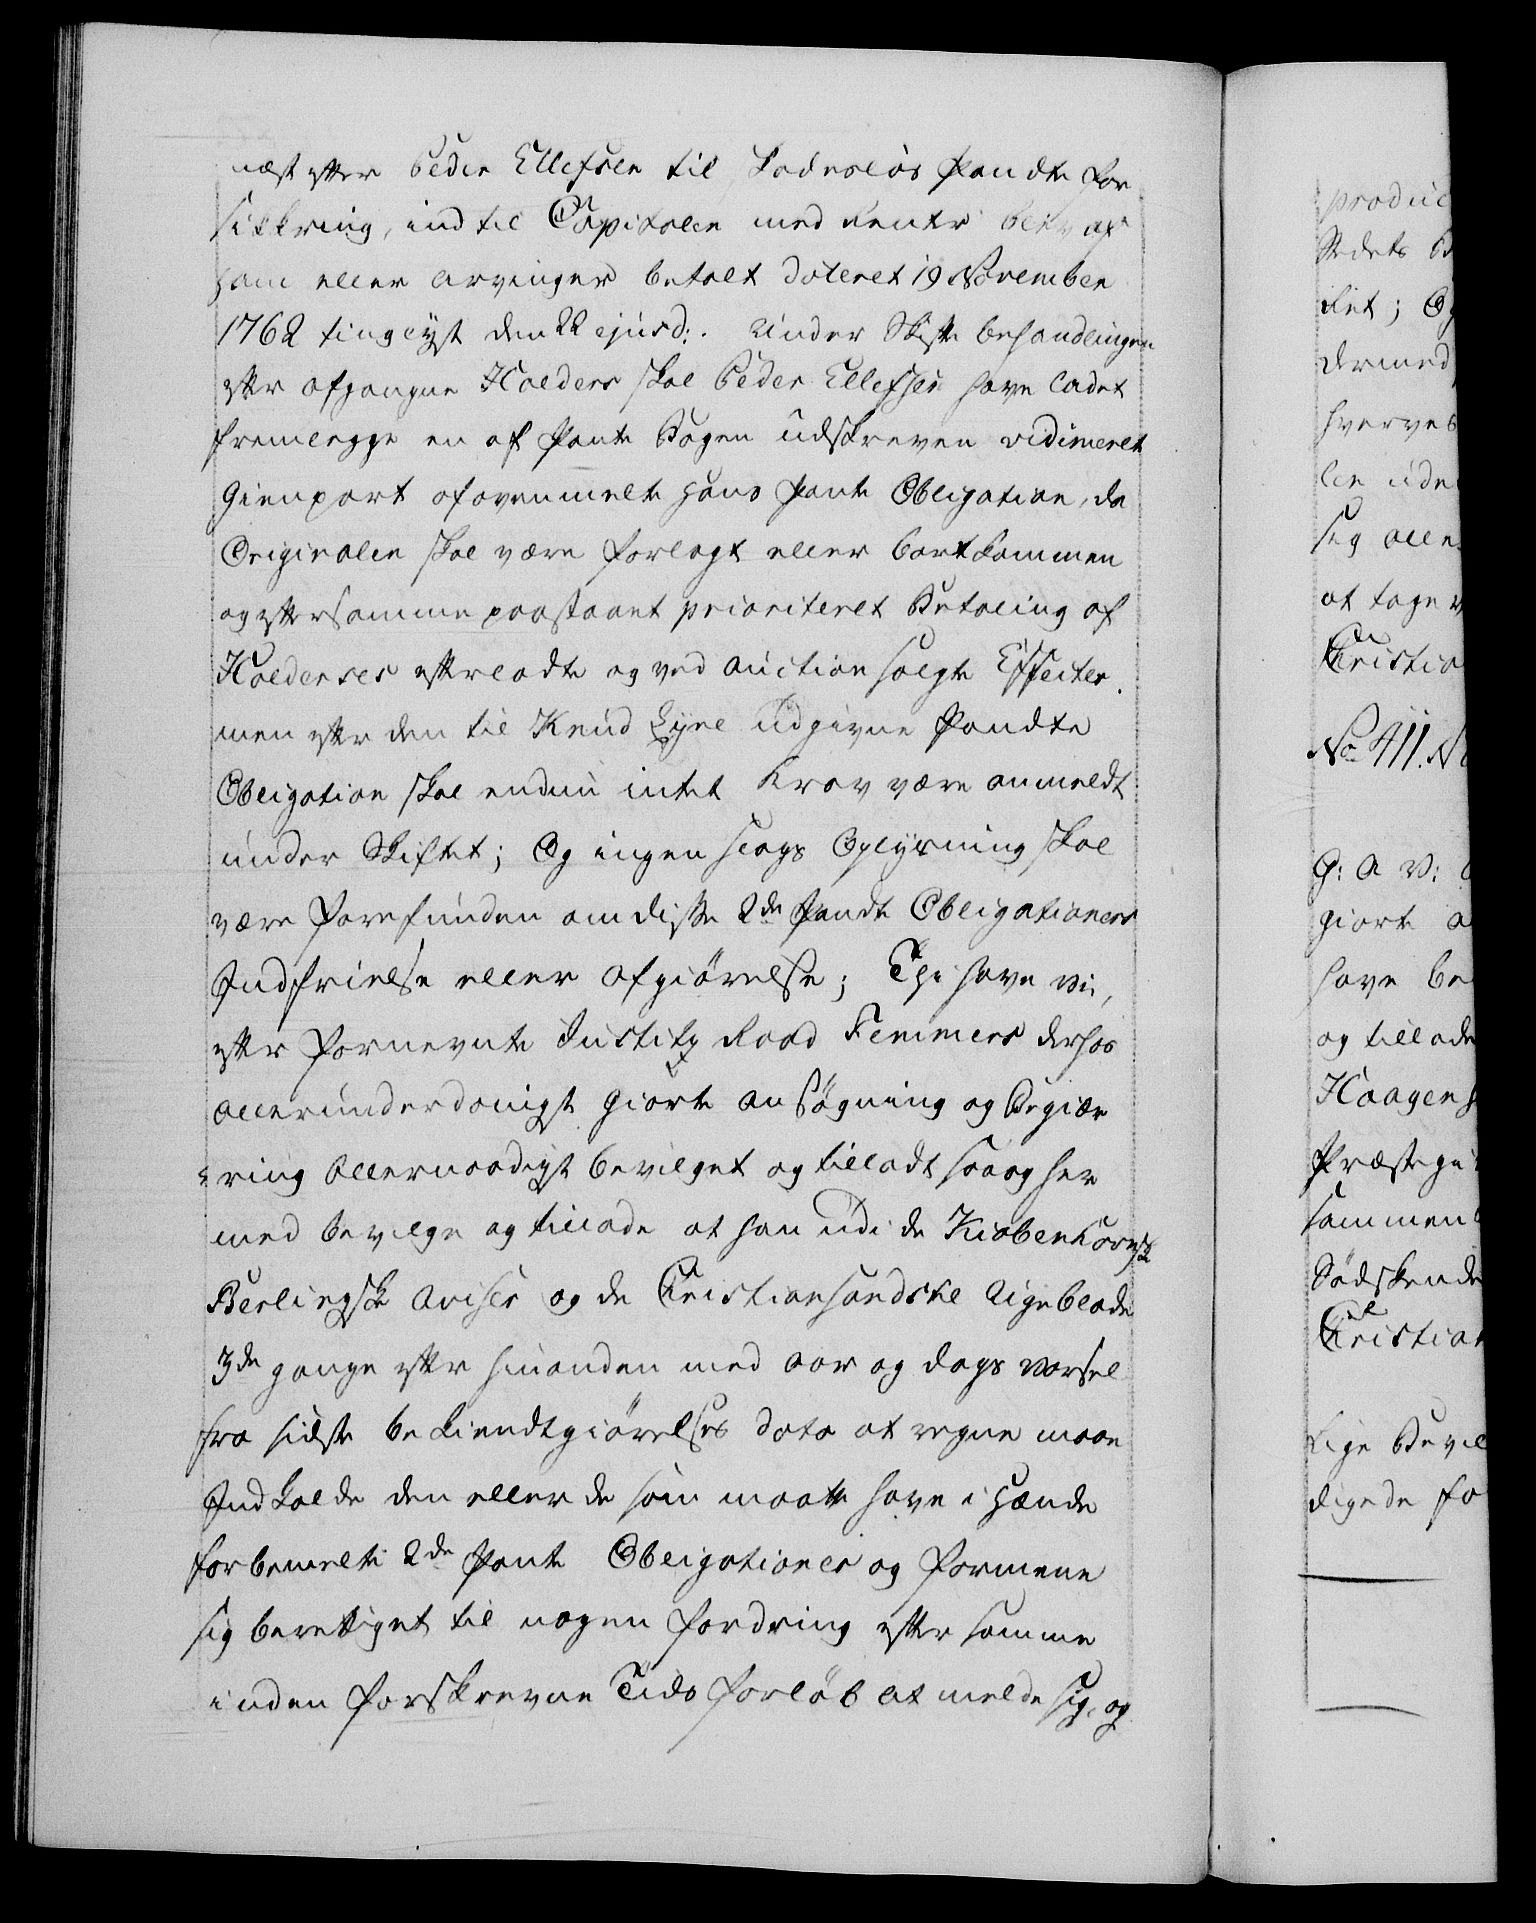 næst efter Peder Ellefsen til skadesløs Pandte for
sikkring, ind til Capitalen med Renter blev af
ham eller Arvinger betalt dateret 19 November
1762 tinglyst den 22 ejusd:. Under Skifte behandlingen
efter afgangne Halders skal Peder Ellefsen have ladet
fremlegge en af Pante Bogen udskreven vidimeret
Gienpart af ovenmelte hans Pante Obligation, da
Originalen skal være forlagt eller bortkommen
og efter samme paastaaet prioriteret Betaling af
Halderses efterladte og ved auction solgte Effecter.
men efter den til Knud Lyne udgivne Pandte
Obligation skal endnu intet Krav være anmeldt
under Skiftet; Og ingen slags Oplysning skal
være forefunden om disse 2de Pandte Obligationers
Indfrielse eller afgiørelse; Thi have vi,
efter fornevnte Justitz Raad Femmers derhos
allerunderdanigst giorte ansøgning og Begiæ
ring allernaadigst bevilget og tilladt saa og her
med bevilge og tillade at han udi de Kiøbenhavnsk
Berlingske Aviser og de Christiansandske Ugeblade
3de gange efter hinanden med aar og dags Varsel
fra sidste bekiendtgiørelses dato at regne maae
Indkalde den eller de som maatte have i hænde
forbemelte 2de Pante Obligationer og formene
sig berettiget til nogen fordring efter samme
inden forskrevne Tids forløb at melde sig, og
produc
Stedets B
Ret; Og
dermed
hverves
len uden
seg alle
at tage v
Christia
No 411. N
G: A V:
giort a
have be
og tillade
Haagens
Præstegi
sammen
Sødskende
Christian
Lige Bevil
digede fo